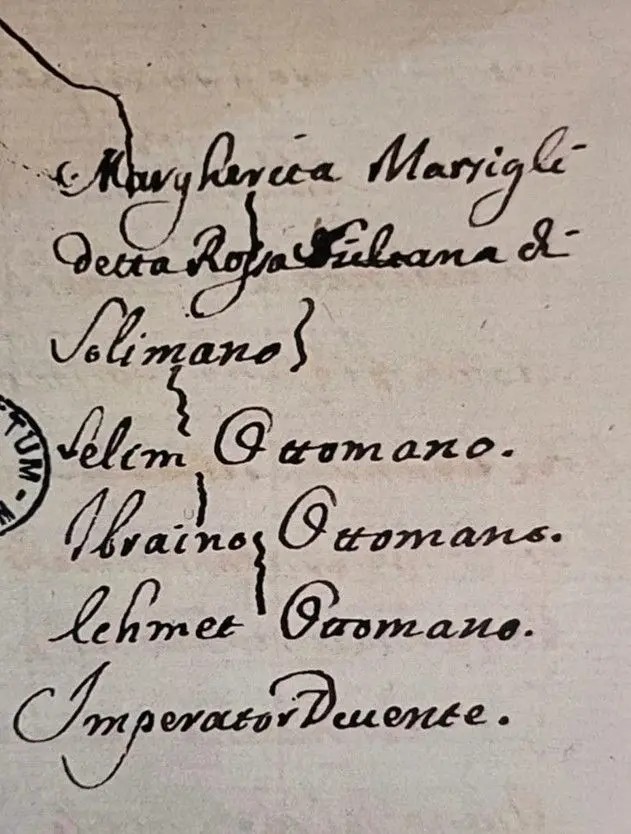 Margherita Marsigli
detta Rossa Sultana di
Solimano
Selim Ottomano.
Ibraino Ottomano.
Lehmet Ottomano.
Imperator Vivente.
TUM